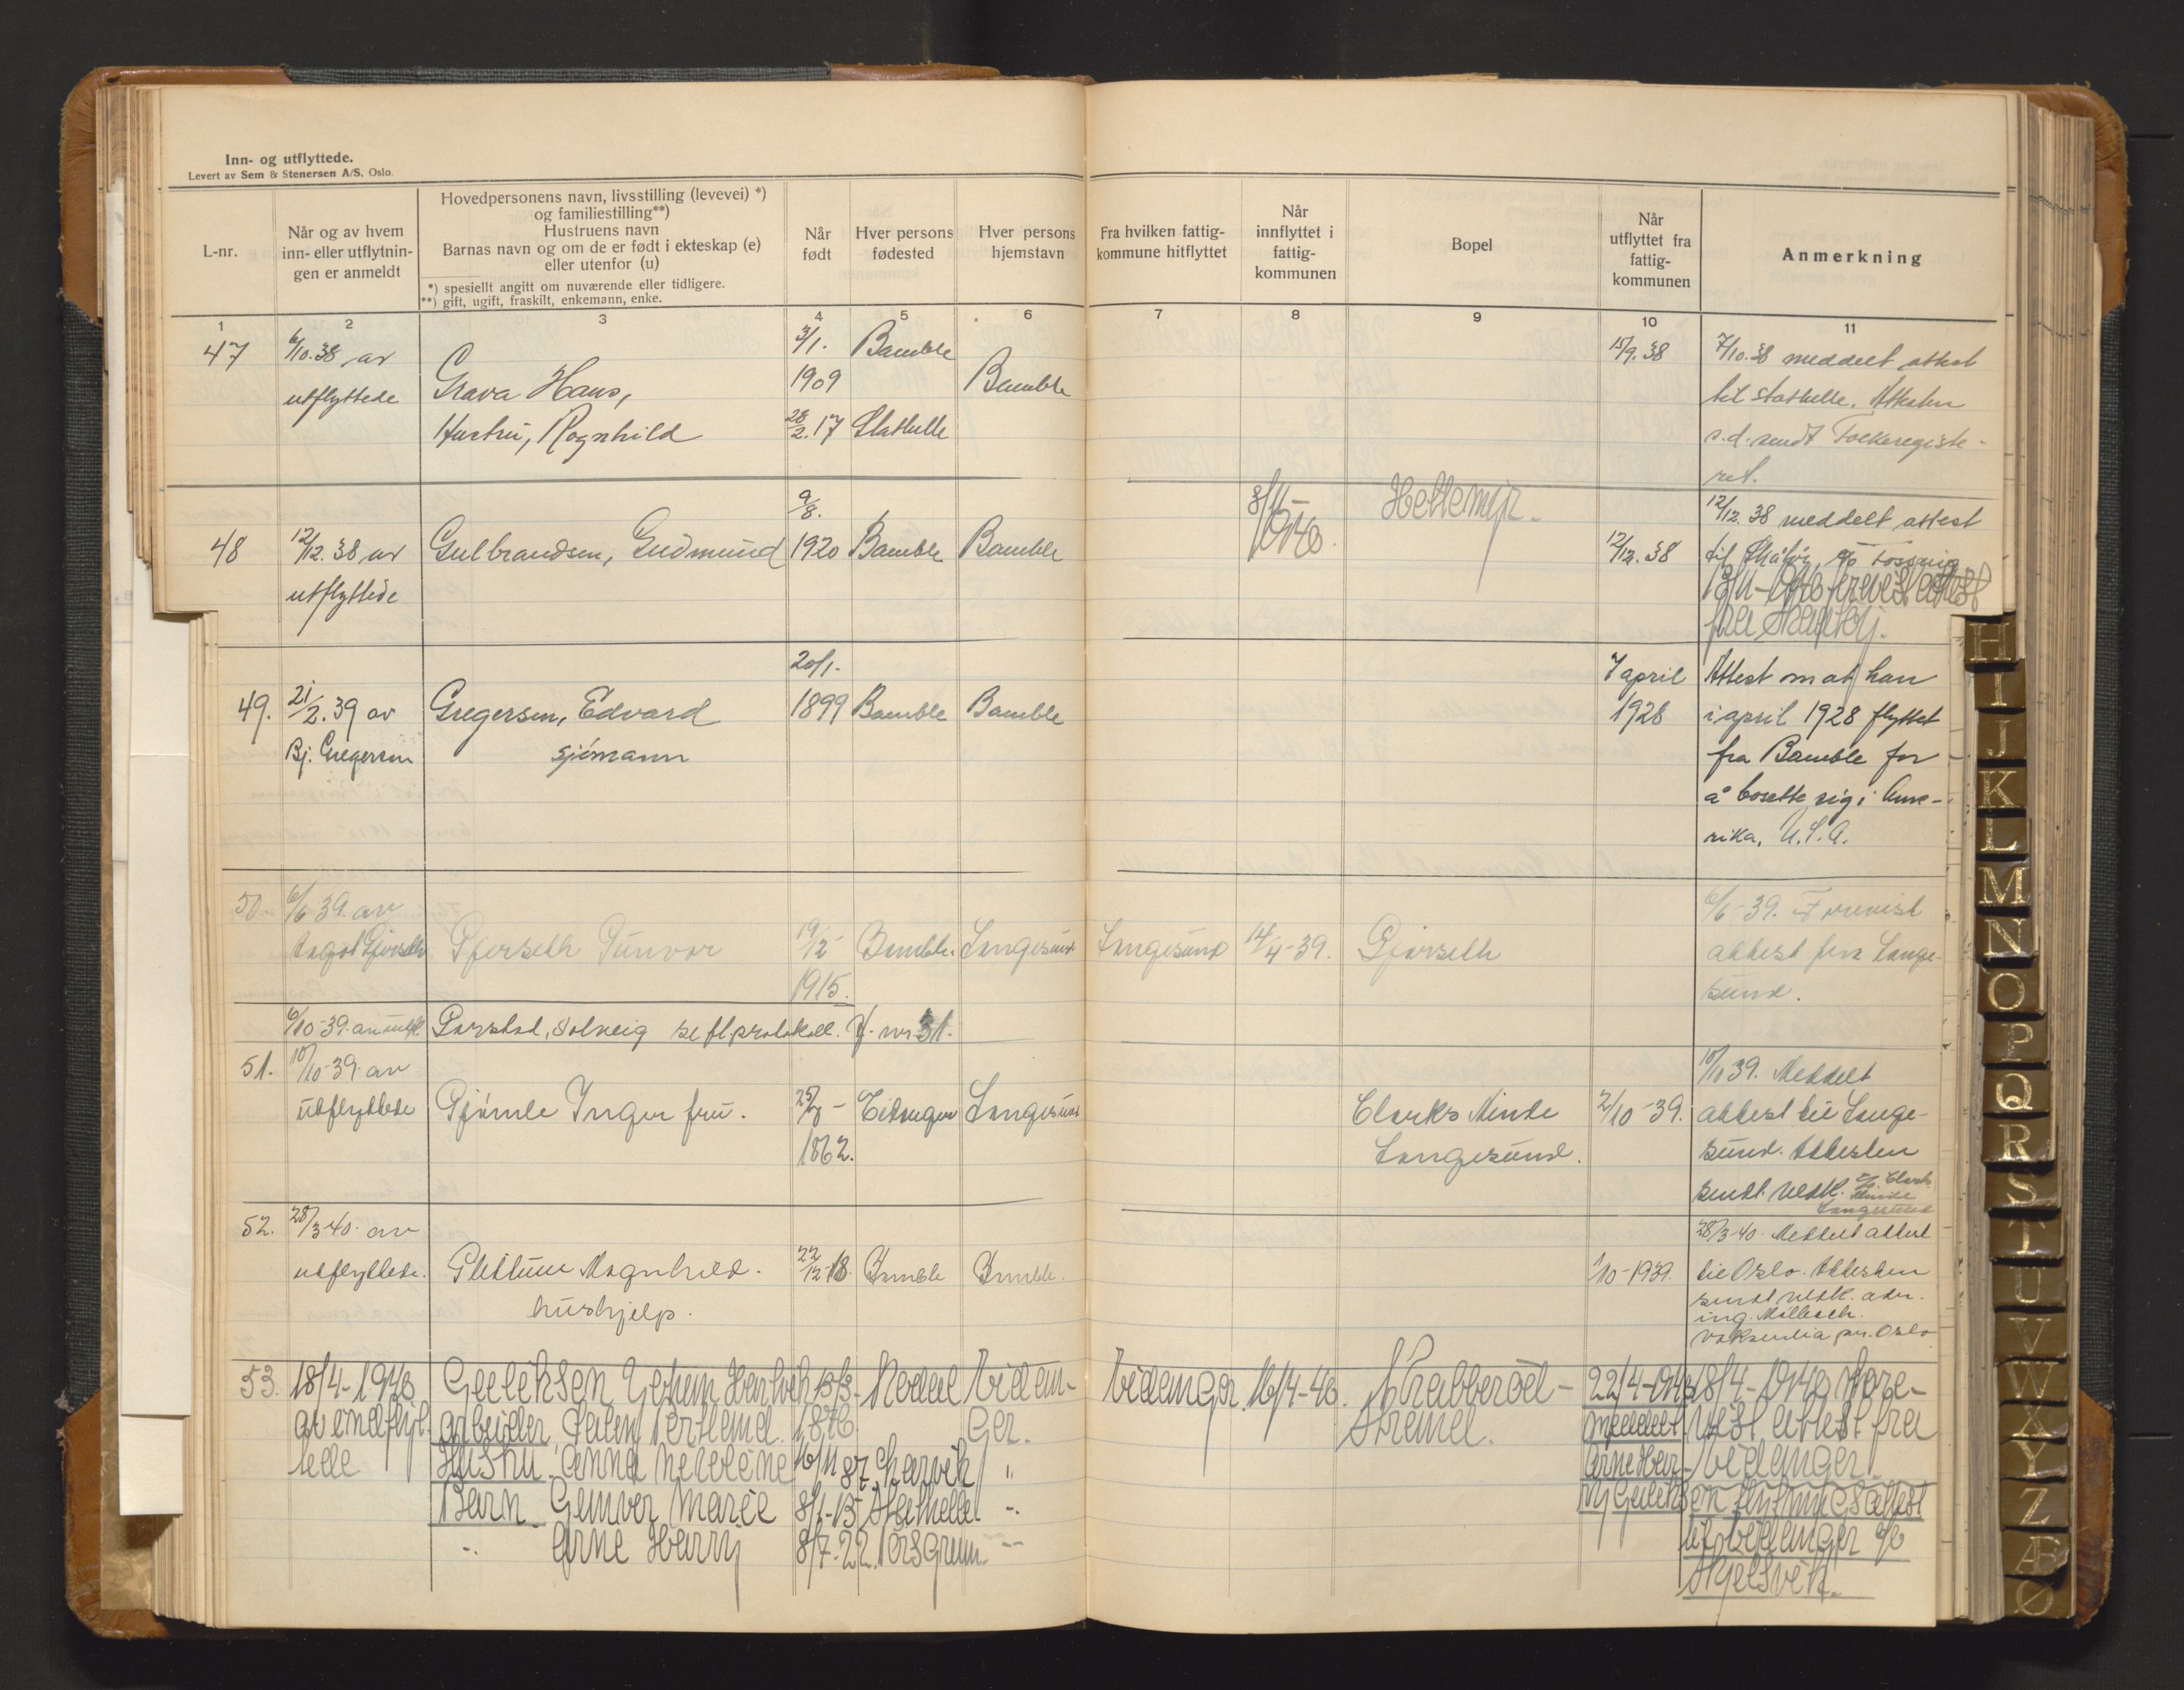 Inn- og utflyttede.
Levert av Sem & Stenersen A/S, Oslo.
L-nr.
Når og av hvem
inn- eller utflytnin-
gen er anmeldt
Hovedpersonens navn, livsstilling (levevei) *)
og familiestilling**)
Hustruens navn
Barnas navn og om de er født i ekteskap (e)
eller utenfor (u)
*) spesiellt angitt om nuværende eller tidligere.
**) gift, ugift, fraskilt, enkemann, enke.
Når
født
Hver persons
fødested
Hver persons
hjemstavn
Fra hvilken fattig-
kommune hitflyttet
Når
innflyttet i
fattig-
kommunen
Bopel
Når
utflyttet fra
fattig-
kommunen
Anmerkning
1 2 3 4 5 6 7 8 9 10 11
47 6/10.38 av 3/1. Bamble 15/9.38 7/10.38 meddelt attest
utflyttede Grava Hans, 1909 Bamble til Stathelle. Attesten
Hustru, Ragnhild 28/2.17 Stathelle s.d. sendt Folkeregiste-
ret.
9/8. 8/11- Hellemyr. 12/12.38 meddelt attest
48 12/12.38 av Gulbrandsen, Gudmund 1920 Bamble Bamble 1940. 12/12.38 til Skåtøy,
utflyttede 13/11-1940 forevist attest
fra Skåtøy.
20/1. 7 april Attest om at han
49. 21/2.39 av Gregersen, Edvard 1899 Bamble Bamble 1928 i april 1928 flyttet
Bj. Gregersen sjømann fra Bamble for
å bosette sig i Ame-
rika, U.S.A.
50. 6/6 39. av 6/6-39. Forevist
Gjerseth Gunvor 19/12- Bamble. Langesund Langesund 14/4-39. Gjerseth attest fra Lange-
1915. sund.
6/10-39. av utfl. Garstad, Solveig se fl.protokoll. G. nr 31.
51. 10/10-39. av 10/10 39. Meddelt
utflyttede Gjømle Inger fru. Eidanger Langesund Clarks Minde 2/10-39. attest til Lange-
1862. Langesund. sund. Attesten
sendt vedk. c/o. Clarks
Minde
Langesund
52. 28/3 40. av 28/3-40. Meddelt attest
utflyttede. Glittum Magnhild. 22/12 18. Bamble Bamble. 1/10-1939. til Oslo. Attesten
hushjelp. sendt vedk. adr.
ing. Møllbach.
Voksenlia pr. Oslo
53. 18/4-1940 Gulliksen 13/3- Eidan- Eidanger. 16/4-40. Krabberød- 22/4-1940 18/4-1940 Fore-
av innflyt- arbeider, 1876. ger. Strand. meddelt vist attest fra
tede Hustru. Anna 16/11 87. Larvik " Arne Har- Eidanger.
Barn Gunvor Marie 8/1-15 Stathelle " ry Gulliksen flytningsattest
" Arne Harry 8/7-22. Porsgrunn. " til Eidanger c/o
Skjelsvik.
H
I
J
K
L
M
N
O
P
Q
R
S
T
U
V
W
X
Y
Z
Æ
Ø